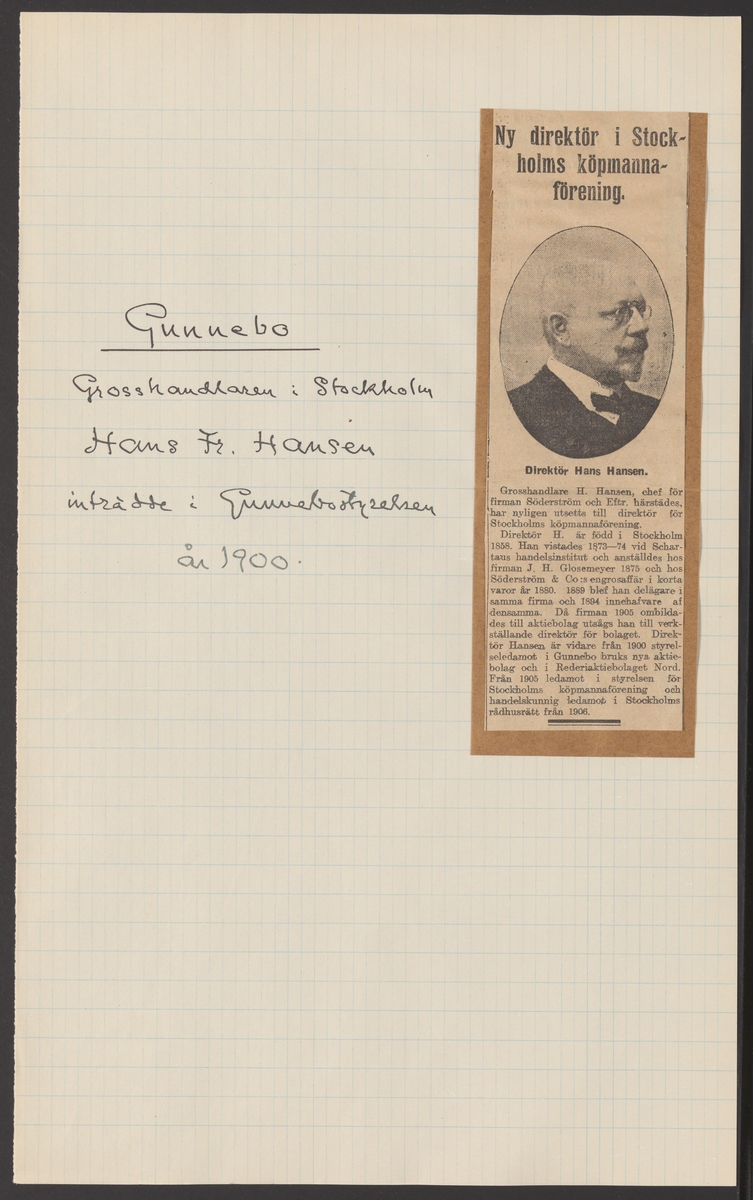 Gunnebo
Grosshandlaren i Stockholm
Hans Fr. Hansen
inträdde i Gunnebostyrelsen
år 1900.
Ny direktör i Stock-
holms köpmanna-
förening.
Direktör Hans Hansen.
Grosshandlare H. Hansen, chef för
firman Söderström och Eftr. härstädes,
har nyligen utsetts till direktör för
Stockholms köpmannaförening.
Direktör H. är född i Stockholm
1858. Han vistades 1873—74 vid Schar-
taus handelsinstitut och anställdes hos
firman J. H. Glosemeyer 1875 och hos
Söderström & Co:s engrosaffär i korta
varor år 1880. 1889 blef han delägare i
samma firma och 1894 innehafvare af
densamma. Då firman 1905 ombilda-
des till aktiebolag utsågs han till verk-
ställande direktör för bolaget. Direk-
tör Hansen är vidare från 1900 styrel-
seledamot i Gunnebo bruks nya aktie-
bolag och i Rederiaktiebolaget Nord.
Från 1905 ledamot i styrelsen för
Stockholms köpmannaförening och
handelskunnig ledamot i Stockholms
rådhusrätt från 1906.